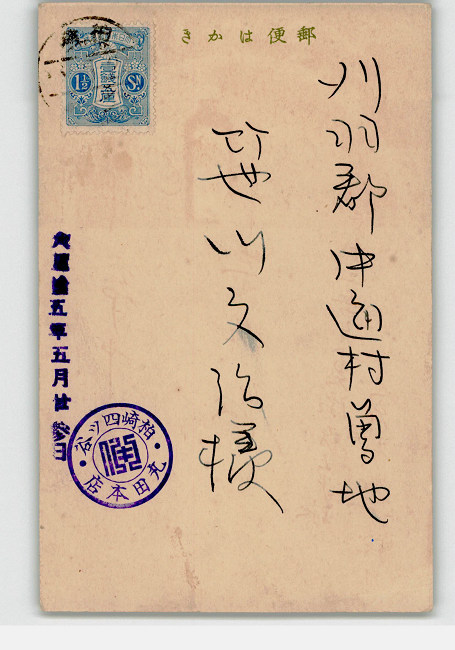 郵便はかき
刈羽郡中通村曽地
笹川文治様
大正拾五年五月廿参日
柏崎四ツ谷
丸田本店
壹錢五厘
1½ Sn